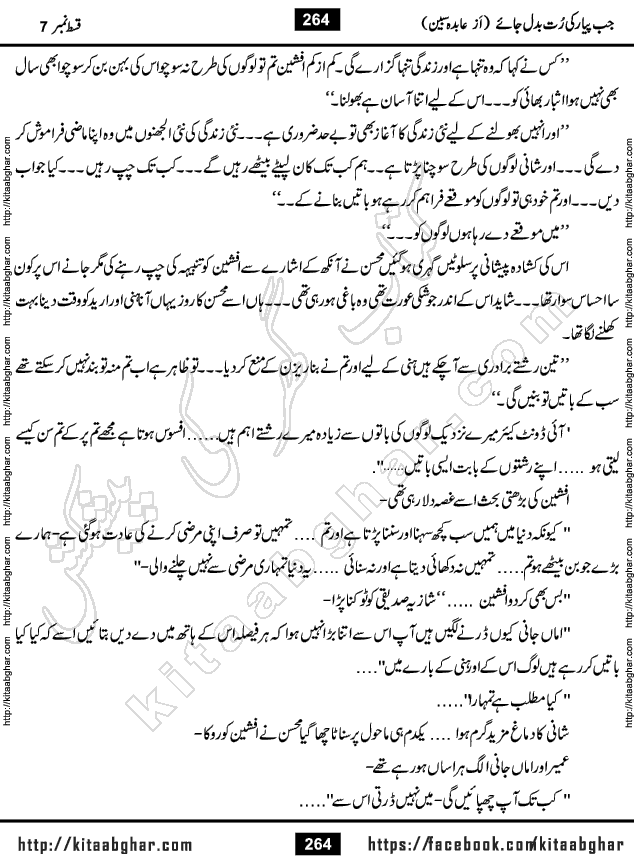 قسط نمبر 7
264
جب پیار کی رُت بدل جائے (از عابدہ سبین)
’’کس نے کہا کہ وہ تنہا ہے اور زندگی تنہا گزارے گی۔ کم از کم افشین تم تو لوگوں کی طرح نہ سوچو اس کی بہن بن کر سوچو ابھی سال
بھی نہیں ہوا اشہار بھائی کو۔۔۔اس کے لیے اتنا آسان ہے بھولنا۔‘‘
’’اور انہیں بھولنے کے لیے نئی زندگی کا آغاز بھی تو بے حد ضروری ہے۔۔۔نئی زندگی کی نئی الجھنوں میں وہ اپنا ماضی فراموش کر
دے گی ۔۔۔اور شانی لوگوں کی طرح سوچنا پڑتا ہے۔۔ہم کب تک کان لپیٹے بیٹھے رہیں گے۔۔۔کب تک چپ رہیں ۔۔۔کیا جواب
دیں۔۔۔اور تم خود ہی تو لوگوں کو موقعے فراہم کر رہے ہو باتیں بنانے کے۔۔‘‘
’’میں موقعے دے رہا ہوں لوگوں کو۔۔۔‘‘
اس کی کشادہ پیشانی پر سلوٹیں گہری ہو گئیں محسن نے آنکھ کے اشارے سے افشین کو تنبیہہ کی چپ رہنے کی مگر جانے اس پر کون
سا احساس سوار تھا۔۔۔شاید اس کے اندر جو شکی عورت تھی وہ باغی ہو رہی تھی۔۔۔ہاں اسے محسن کا روز یہاں آنا ہنی اور ارید کو وقت دینا بہت
کھلنے لگا تھا۔
’’تین رشتے برادری سے آ چکے ہیں ہنی کے لیے اور تم نے بنا ریزن کے منع کر دیا۔۔۔تو ظاہر ہے اب تم منہ تو بند نہیں کر سکتے تھے
سب کے باتیں تو بنیں گی۔‘‘
'آئی ڈونٹ کیئر میرے نزدیک لوگوں کی باتوں سے زیادہ میرے رشتے اہم ہیں......افسوس ہوتا ہے مجھے تم پر کے تم سن کیسے
لیتی ہو .....اپنے رشتوں کے بابت ایسی باتیں......".
افشین کی بڑھتی بحث اسے غصہ دلا رہی تھی-
" کیونکہ دنیا میں ہمیں سب کچھ سہنا اور سننا پڑتا ہے اور تم ....تمہیں تو صرف اپنی مرضی کرنے کی عادت ہو گئی ہے-ہمارے
بڑے جو بن بیٹھے ہو تم.....تمہیں نہ دکھائی دیتا ہے اور نہ سنائی .....یہ دنیا تمہاری مرضی سے نہیں چلنے والی-"
"بس بھی کر دو افشین .....‘‘شازیہ صدیقی کو ٹوکنا پڑا-
"اماں جانی کیوں ڈرنے لگیں ہیں آپ اس سے اتنا بڑا نہیں ہوا کہ ہر فیصلہ اس کے ہاتھ میں دے دیں بتائیں اسے کہ کیا کیا
باتیں کر رہے ہیں لوگ اس کے اور ہنی کے بارے میں"....
" کیا مطلب ہے تمہارا".....
شانی کا دماغ مزید گرم ہوا ....یکدم ہی ماحول پر سناٹا چھا گیا محسن نے افشین کو روکا-
عمیر اور اماں جانی الگ ہراساں ہو رہے تھے-
" کب تک آپ چھپائیں گی-میں نہیں ڈرتی اس سے".....
http://kitaabghar.com
http://kitaabghar.com
http://kitaabghar.com
http://kitaabghar.com
http://kitaabghar.com
http://kitaabghar.com
http://kitaabghar.com
http://kitaabghar.com
http://kitaabghar.com
http://kitaabghar.com
http://kitaabghar.com
http://kitaabghar.com
کتاب گھر کی پیشکش
kitaabghar.com
http://kitaabghar.com
264
https://facebook.com/kitaabghar